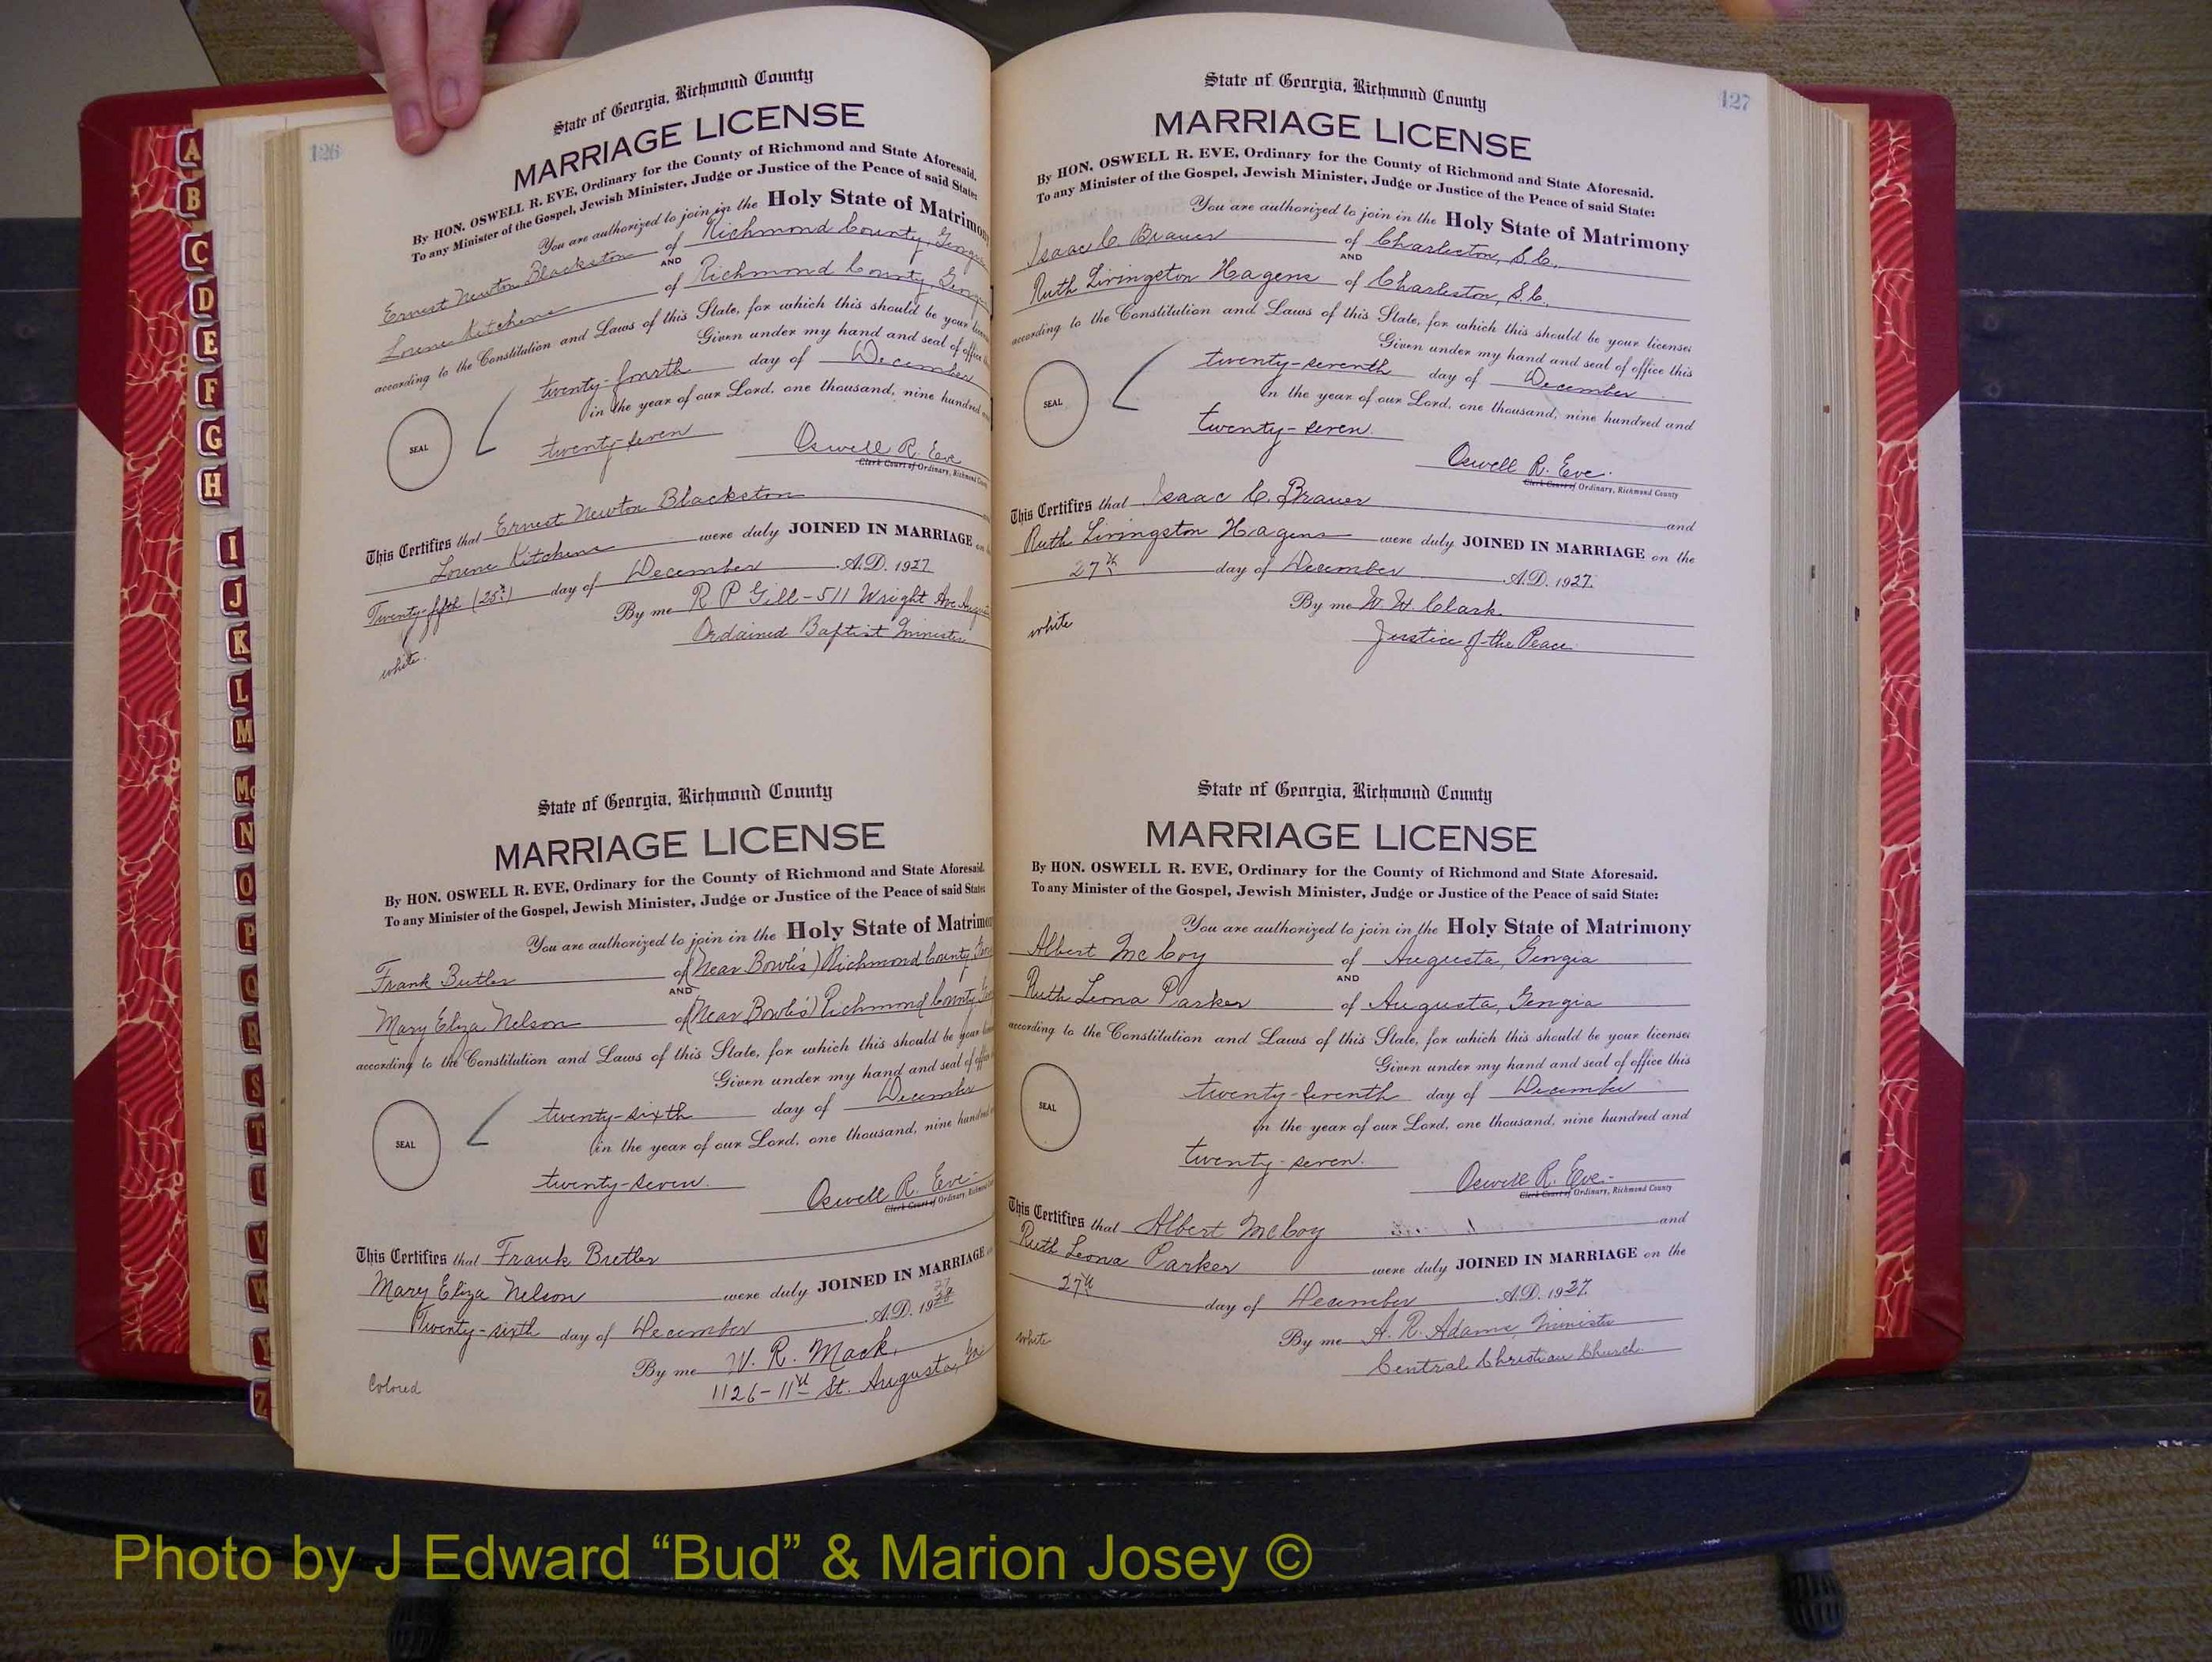 126
State of Georgia, Richmond County
MARRIAGE LICENSE
By HON. OSWELL R. EVE, Ordinary for the County of Richmond and State Aforesaid.
To any Minister of the Gospel, Jewish Minister, Judge or Justice of the Peace of said State:
You are authorized to join in the Holy State of Matrimony
Ernest Newton Blackston of Richmond County, Georgia
AND
Lorene Kitchens of Richmond County, Georgia
according to the Constitution and Laws of this State, for which this should be your
Given under my hand and seal of office
twenty-fourth day of December
in the year of our Lord, one thousand, nine hundred
SEAL
twenty-seven
Oswell R. Eve
Clerk Court of Ordinary, Richmond County
This Certifies that Ernest Newton Blackston
Lorene Kitchens were duly JOINED IN MARRIAGE on
Twenty-fifth (25th) day of December A.D. 1927
By me R P Gill - 511 Wright Ave Augusta
Ordained Baptist Minister
white.
State of Georgia, Richmond County
MARRIAGE LICENSE
By HON. OSWELL R. EVE, Ordinary for the County of Richmond and State Aforesaid.
To any Minister of the Gospel, Jewish Minister, Judge or Justice of the Peace of said State:
You are authorized to join in the Holy State of Matrimony
Frank Butler of (Near Bowles') Richmond County,
AND
Mary Eliza Nelson of (Near Bowles') Richmond County,
according to the Constitution and Laws of this State, for which this should be your
Given under my hand and seal of office
twenty-sixth day of December
in the year of our Lord, one thousand, nine hundred
SEAL
twenty-seven.
Oswell R. Eve-
Clerk Court of Ordinary, Richmond
This Certifies that Frank Butler
Mary Eliza Nelson were duly JOINED IN MARRIAGE
Twenty-sixth day of December A.D. 1928 27
By me W. R. Mack,
1126-11th St. Augusta, Ga
Colored
127
State of Georgia, Richmond County
MARRIAGE LICENSE
By HON. OSWELL R. EVE, Ordinary for the County of Richmond and State Aforesaid.
To any Minister of the Gospel, Jewish Minister, Judge or Justice of the Peace of said State:
You are authorized to join in the Holy State of Matrimony
Isaac C. Brauer of Charleston, S.C.
AND
Ruth Livingston Hagens of Charleston, S.C.
according to the Constitution and Laws of this State, for which this should be your license:
Given under my hand and seal of office this
twenty-seventh day of December
in the year of our Lord, one thousand, nine hundred and
SEAL
twenty-seven.
Oswell R. Eve.
Clerk Court of Ordinary, Richmond County
This Certifies that Isaac C. Brauer and
Ruth Livingston Hagens were duly JOINED IN MARRIAGE on the
27th day of December A.D. 1927.
By me W. W. Clark
Justice of the Peace.
white
State of Georgia, Richmond County
MARRIAGE LICENSE
By HON. OSWELL R. EVE, Ordinary for the County of Richmond and State Aforesaid.
To any Minister of the Gospel, Jewish Minister, Judge or Justice of the Peace of said State:
You are authorized to join in the Holy State of Matrimony
Albert McCoy of Augusta, Georgia
AND
Ruth Leona Parker of Augusta, Georgia
according to the Constitution and Laws of this State, for which this should be your license:
Given under my hand and seal of office this
twenty-seventh day of December
in the year of our Lord, one thousand, nine hundred and
SEAL
twenty-seven.
Oswell R. Eve.-
Clerk Court of Ordinary, Richmond County
This Certifies that Albert McCoy and
Ruth Leona Parker were duly JOINED IN MARRIAGE on the
27th day of December A.D. 1927.
By me A. R. Adams, Minister
Central Christian Church.
white
A
B
C
D
E
F
G
H
I
J
K
L
M
Mc
N
O
P
Q
R
S
T
U
V
W
Y
Z
Photo by J Edward “Bud” & Marion Josey ©